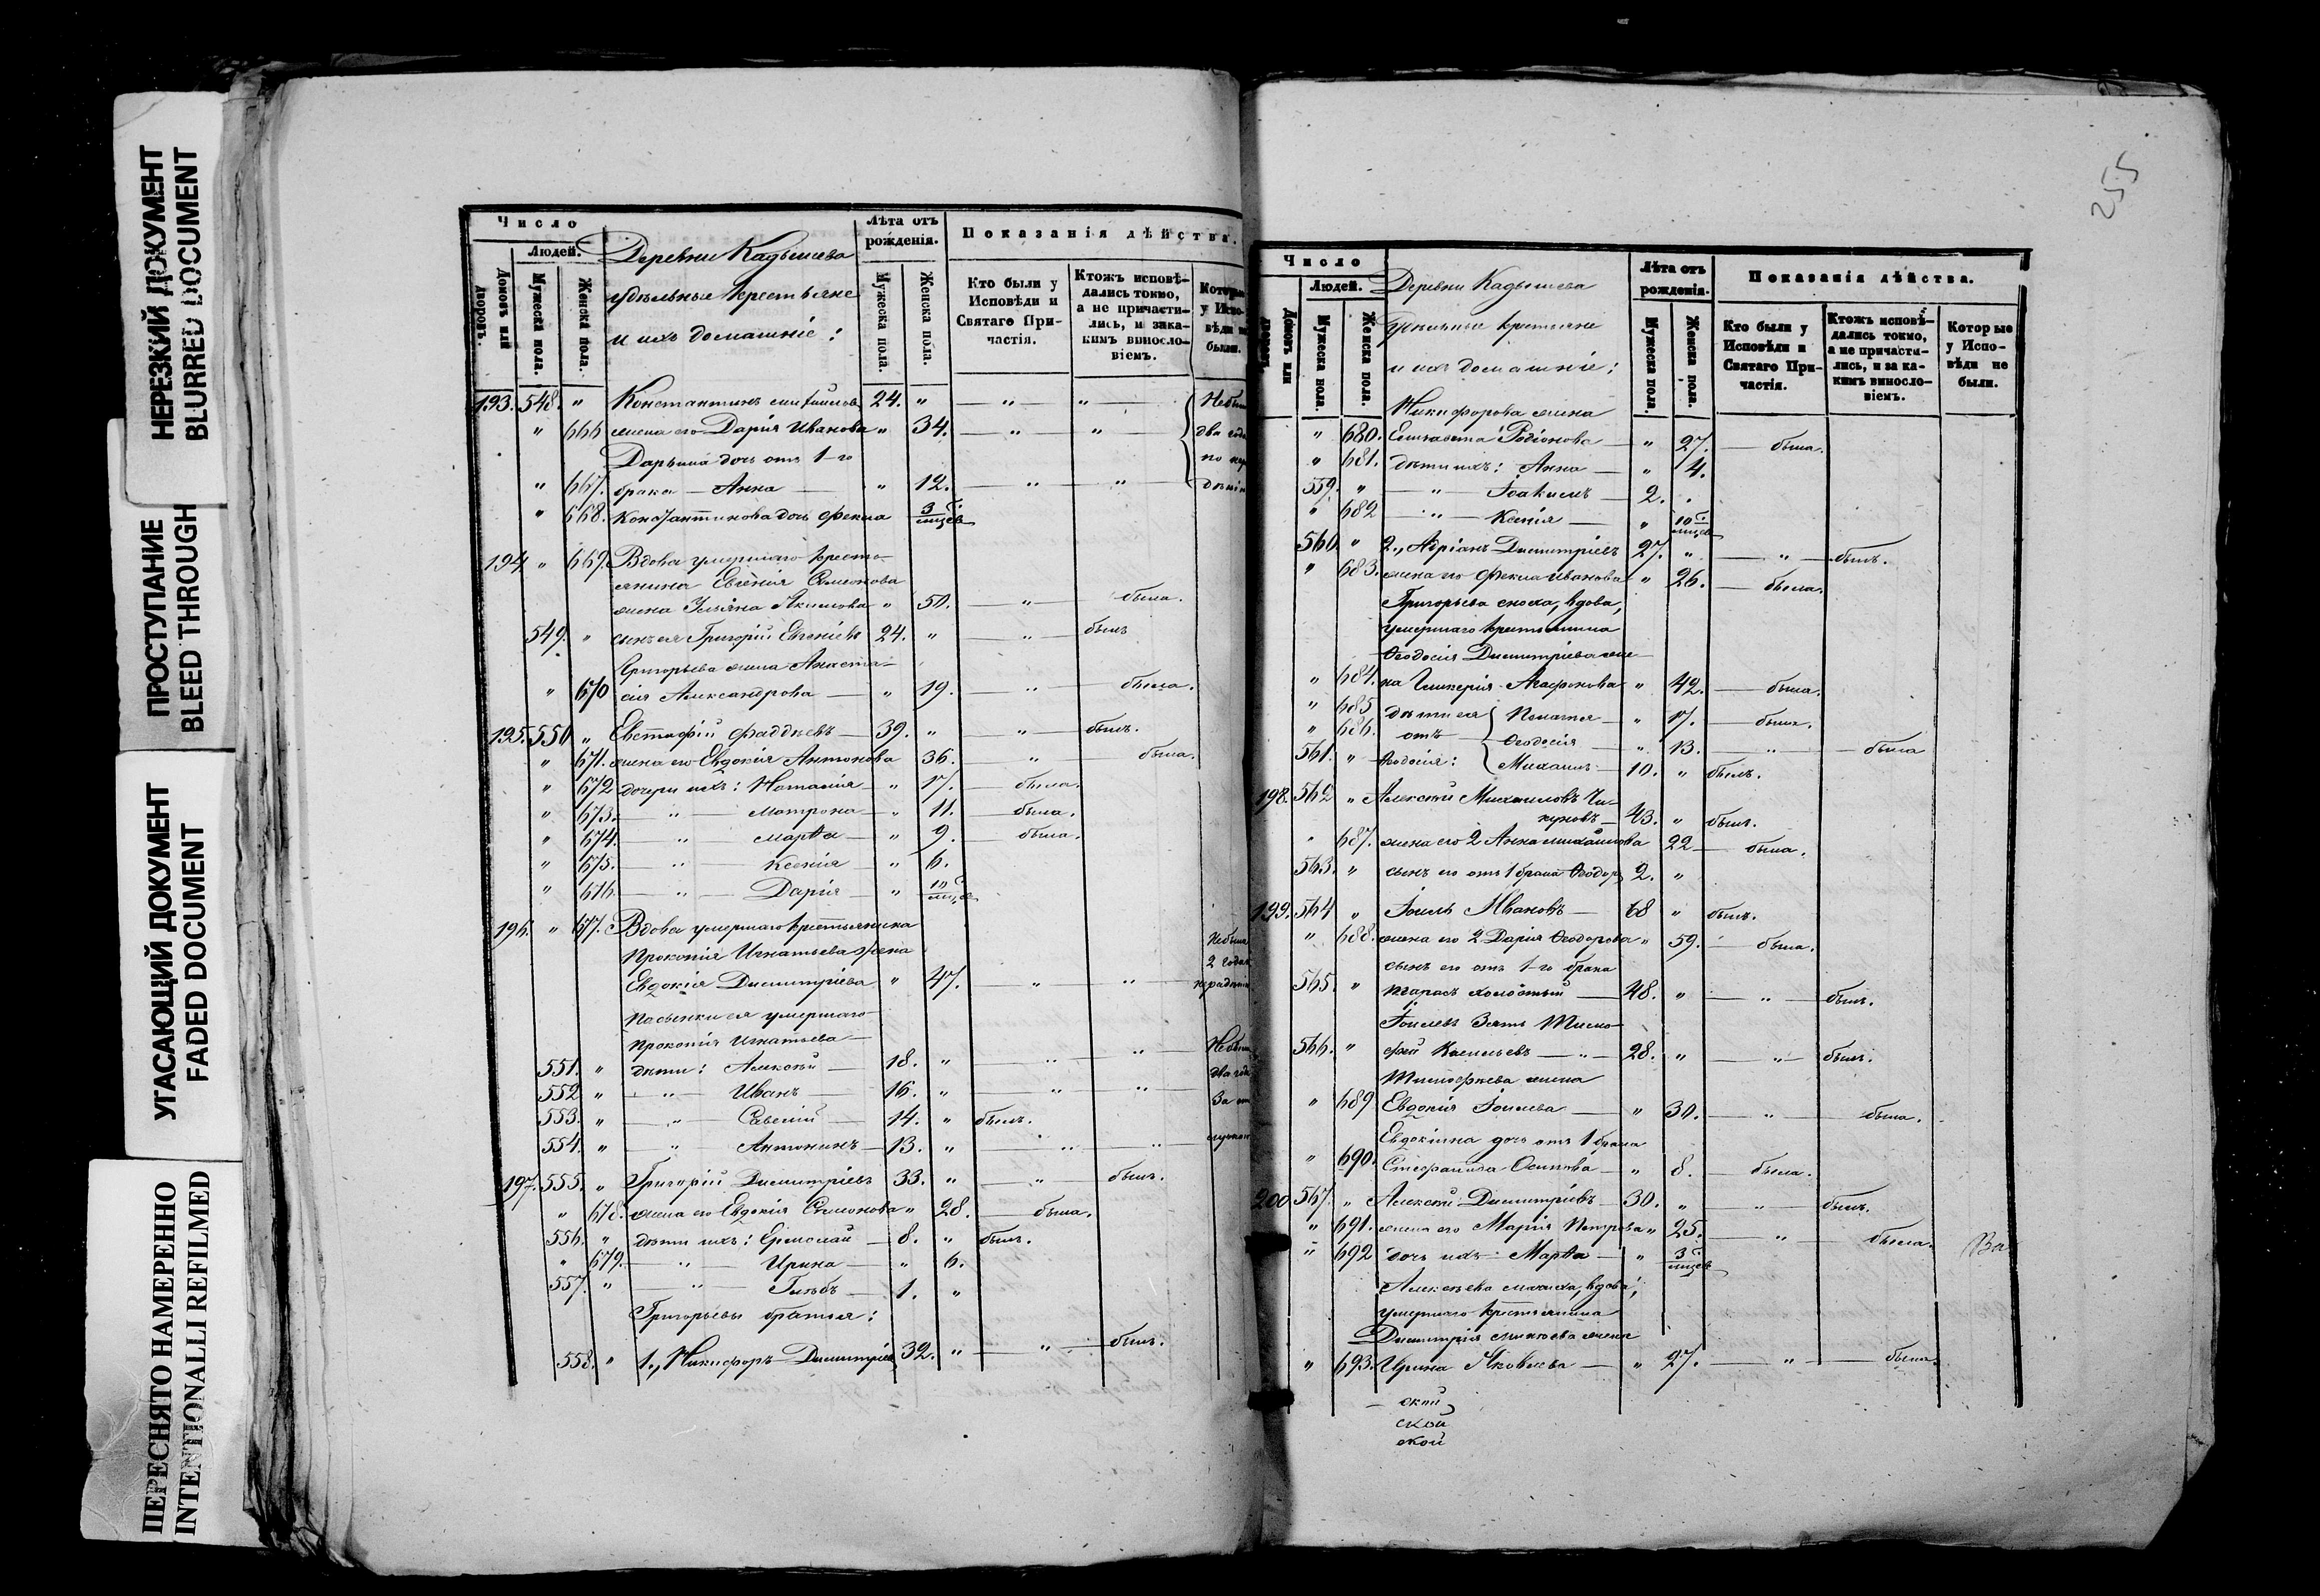 НЕРЕЗКИЙ ДОКУМЕНТ
BLURRED DOCUMENT
ПРОСТУПАНИЕ
BLEED THROUGH
УГАСАЮЩИЙ ДОКУМЕНТ
FADED DOCUMENT
ПЕРЕСНЯТО НАМЕРЕННО
INTENTIONALLI REFILMED
Число
Людей.
Домовъ или дворовъ.
Мужеска пола.
Женска пола.
Деревни Кадышева
удѣльные крестьяне
и ихъ домашніе:
Лѣта отъ рожденія.
Мужеска пола.
Женска пола.
Показанія дѣйства.
Кто были у Исповѣди и Святаго Причастія.
Ктожъ исповѣдались токмо, а не причастились, и за какимъ винословіемъ.
193. 548. " Константинъ 24. " " "
" 666 жена его Дарія Иванова " 34. " "
Дарьина дочь отъ 1-го
" 667. брака — Анна — " 12. " "
" 668. Константинова дочь Фекла 3 мѣсяц.
194 " 669. Вдова умершаго кресть-
янина Евгенія Семенова
жена Ульяна Якимова " 50. " была.
549. " сынъ ея Григорій Евгеніевъ 24. " " былъ
Григорьева жена Анаста-
" 670 сія Александрова — " 19. " была.
195. 550 " Евстафій Фаддѣевъ — 39. " " былъ.
" 671. жена его Евдокія Антонова 36. " была.
" 672 дочери ихъ: Наталія — " 17. — была.
" 673. " Матрона — " 11. — была.
" 674. " Марѳа — " 9. — была.
" 675. " Ксенія " 6.
" 676. " Дарія — " 10 мѣсяц.
196. " 677. Вдова умершаго крестьянина
Прокопія Игнатьева жена
Евдокія Димитріева " 47. " "
Пасынки ея умершаго
Прокопія Игнатьева —
551. " дѣти: Алексѣй — 18. " " "
552 " " Иванъ — 16. " " "
553. " " Савелій — 14. " былъ.
554. " " Антонинъ — 13. " " "
197. 555. " Григорій Димитріевъ 33. " " былъ.
" 678. жена его Евдокія Семенова " 28. — была.
556. " дѣти ихъ: Ермолай — 8. " былъ.
" 679. " Ирина — " 6.
557. " " Глѣбъ — 1. "
Григорьевы братья:
558. " 1., Никифоръ Димитріевъ 32. " " былъ.
255
Число
Людей.
Домовъ или дворовъ.
Мужеска пола.
Женска пола.
Деревни Кадышева
удѣльные крестьяне
и ихъ домашніе:
Лѣта отъ рожденія.
Мужеска пола.
Женска пола.
Показанія дѣйства.
Кто были у Исповѣди и Святаго Причастія.
Ктожъ исповѣдались токмо, а не причастились, и за какимъ винословіемъ.
Которые у Исповѣди не были.
Никифорова жена
" 680. Елизавета Родіонова — " 27. — была.
" 681. дѣти ихъ: Анна — " 4.
559. " " Іоакимъ — 2. "
" 682 " Ксенія — " 10 мѣсяц.
560. " 2., Адріанъ Димитріевъ 27. " " былъ.
" 683. жена его Фекла Иванова " 26. — была.
Григорьева сноха, вдова,
умершаго крестьянина
Ѳеодосія Димитріева же-
" 684. на Гликерія Агафонова " 42. — была.
" 685 дѣти ея Пелагея — " 17. — была.
" 686. отъ Ѳеодосія — " 13. " была
561. " Ѳеодосія: Михаилъ — 10. " былъ.
198. 562 " Алексѣй Михаиловъ Чи-
куновъ — 43. " былъ.
" 687. жена его 2 Анна Михайлова 22 — была.
563. " сынъ его отъ 1 брака Ѳеодоръ 2. "
199. 564 " Іоиль Ивановъ — 68 " былъ.
" 688. жена его 2 Дарія Ѳеодорова " 59. — была.
сынъ его отъ 1-го брака
565. " Тарасъ холостый — 48. " " былъ.
Іоилевъ зять Тимо-
566. " фей Васильевъ — 28. " " былъ.
Тимофеева жена
" 689 Евдокія Іоилева — " 30. " была.
Евдокіина дочь отъ 1 брака
" 690. Стефанида Осипова — " 8. — была.
200 567. " Алексѣй Димитріевъ — 30. " " былъ.
" 691. жена его Марія Петрова " 25. " была.
" 692 дочь ихъ Марѳа — " 3 мѣсяц.
Ва
Алексѣева мачиха, вдова,
умершаго крестьянина
Димитрія жена
" 693. Ирина Яковлева — " 27. " была.
ской
ской
ской